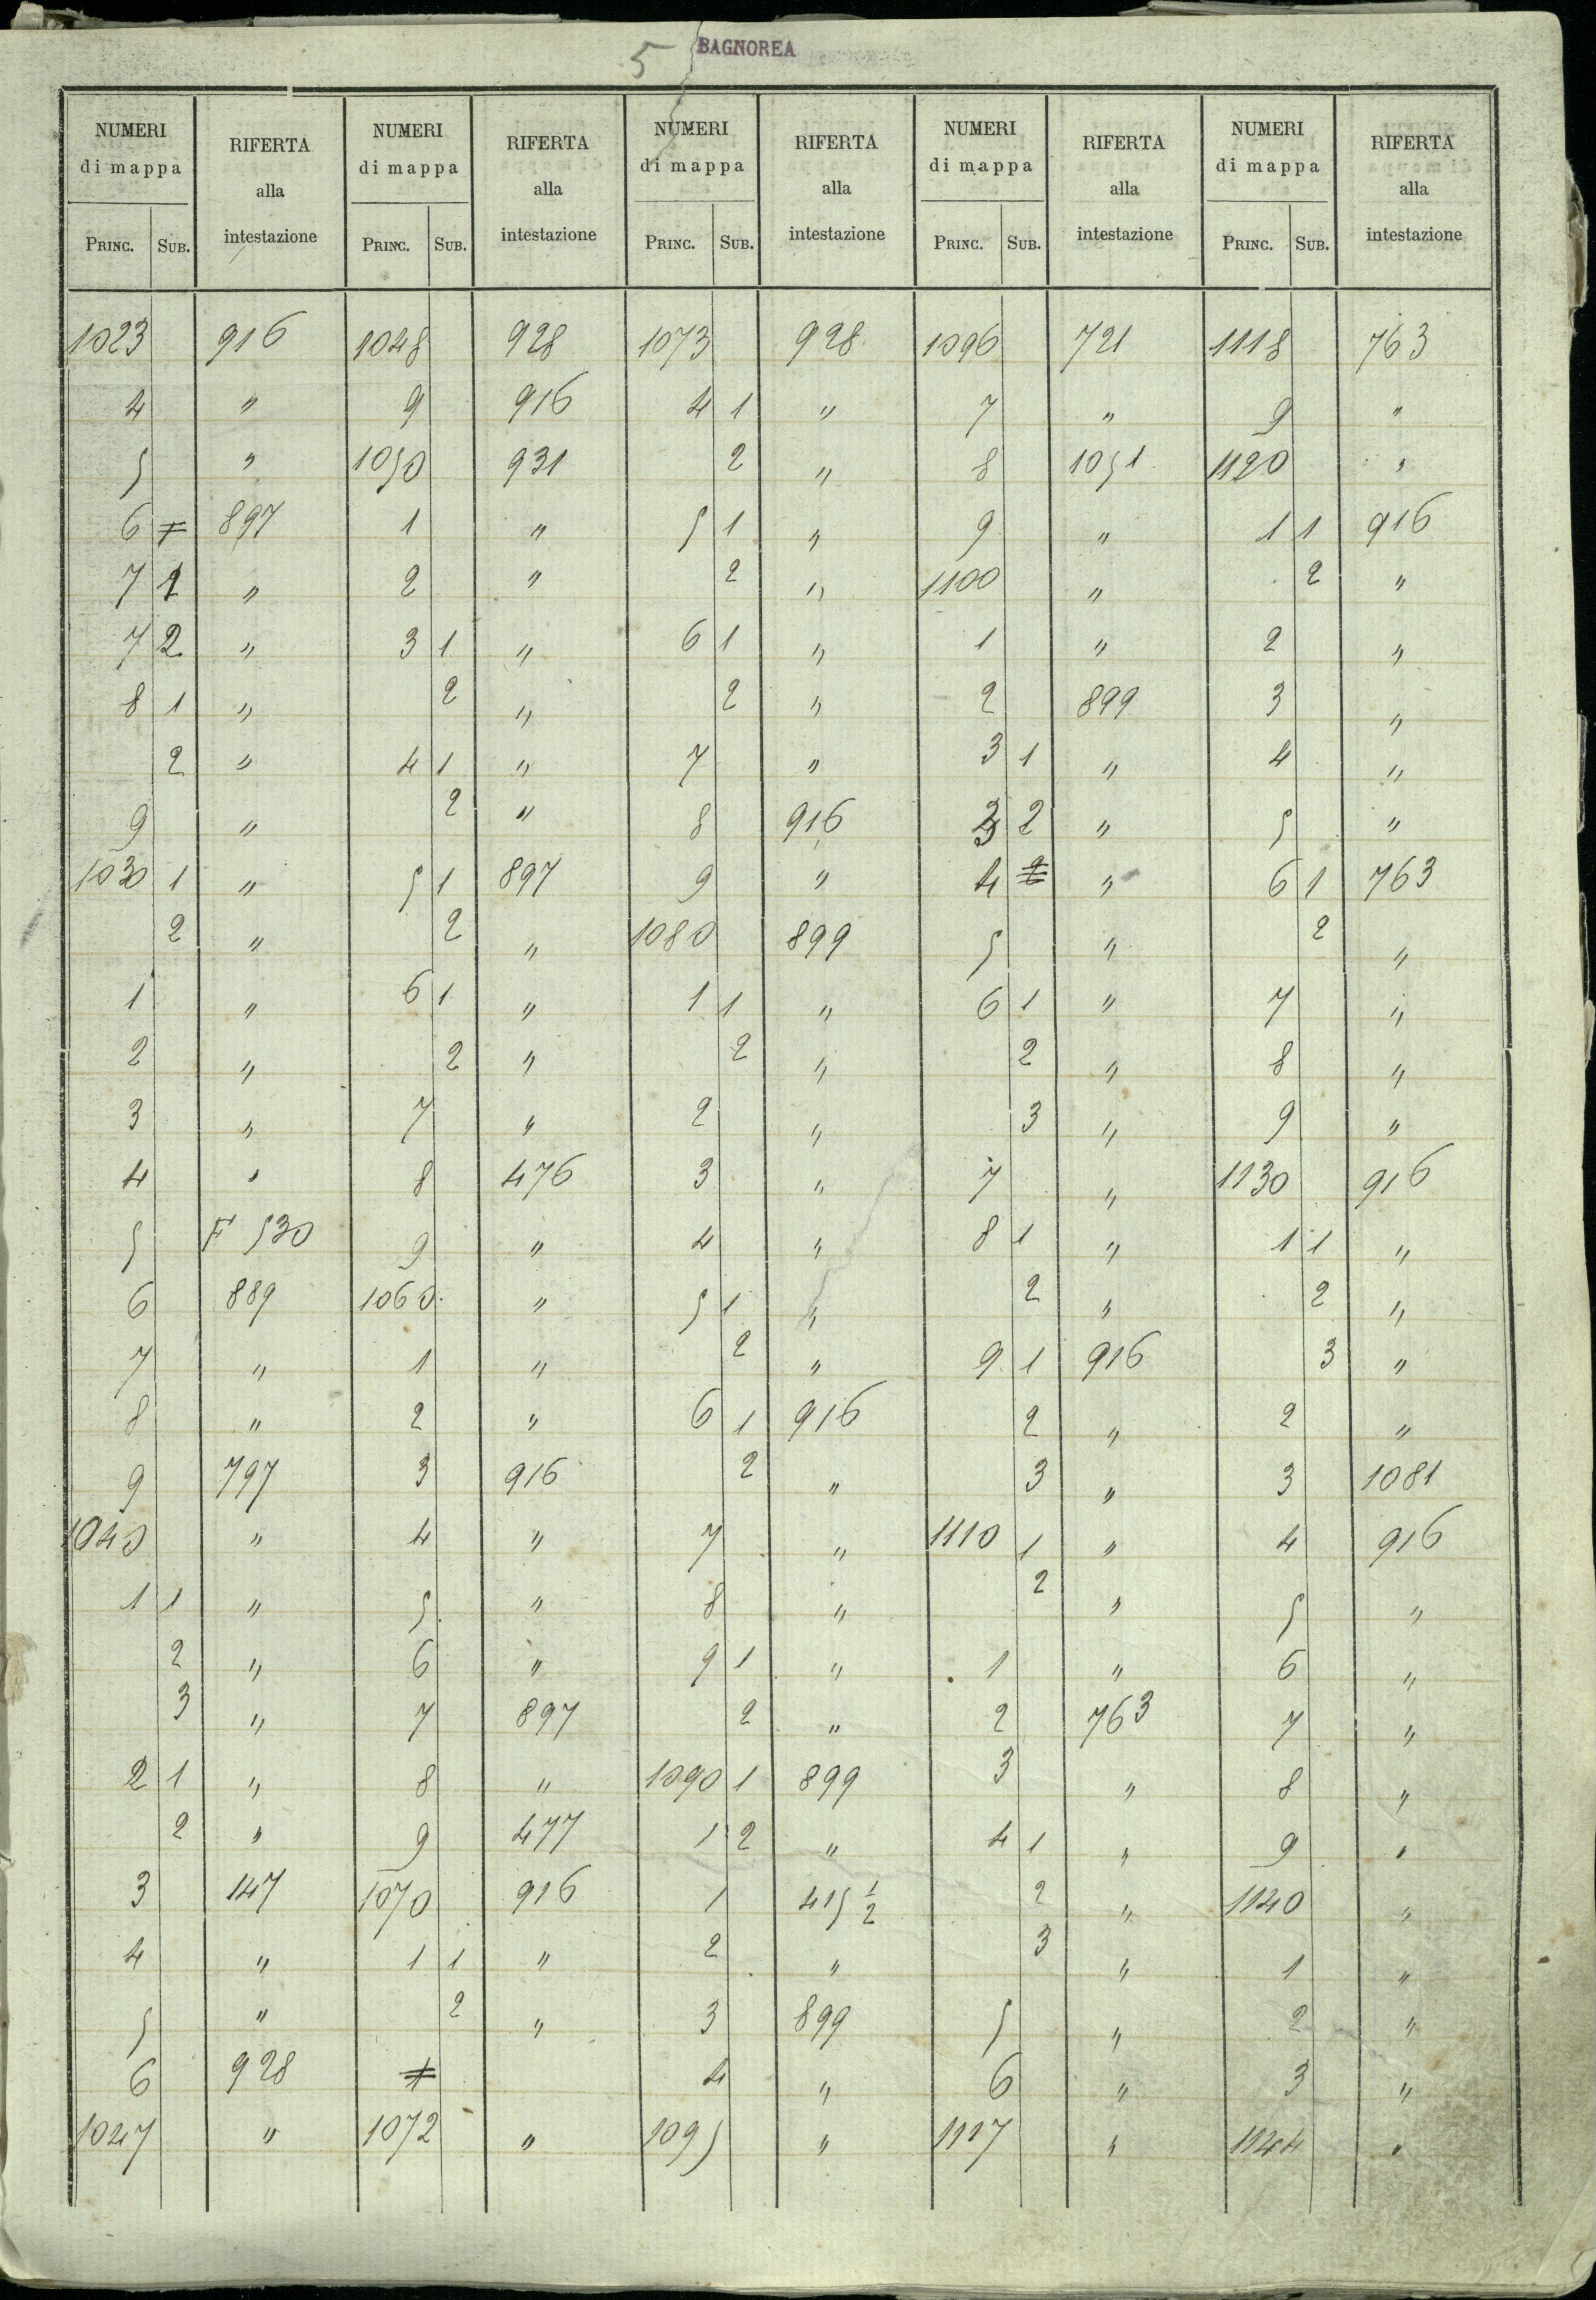 5 BAGNOREA
NUMERI RIFERTA NUMERI RIFERTA NUMERI RIFERTA NUMERI RIFERTA NUMERI RIFERTA
di mappa alla di mappa alla di mappa alla di mappa alla di mappa alla
PRINC. SUB. intestazione PRINC. SUB. intestazione PRINC. SUB. intestazione PRINC. SUB. intestazione PRINC. SUB. intestazione
1023 916 1048 928 1073 928 1096 721 1118 763
4 " 9 916 4 1 " 7 " 9 "
5 " 1050 931 2 " 8 1051 1120 "
6 897 1 " 5 1 " 9 " 1 1 916
7 1 " 2 " 2 " 1100 " 2 "
7 2 " 3 1 " 6 1 " 1 " 2 "
8 1 " 2 " 2 " 2 899 3 "
2 " 4 1 " 7 " 3 1 " 4 "
9 " 2 " 8 916 3 2 " 5 "
1030 1 " 5 1 897 9 " 4 " 6 1 763
2 " 2 " 1080 899 5 " 2 "
1 " 6 1 " 1 1 " 6 1 " 7 "
2 " 2 " 2 " 2 " 8 "
3 " 7 " 2 " 3 " 9 "
4 " 8 476 3 " 7 " 1130 916
5 F 530 9 " 4 " 8 1 " 1 1 "
6 889 1060 " 5 1 " 2 " 2 "
7 " 1 " 2 " 9 1 916 3 "
8 " 2 " 6 1 916 2 " 2 "
9 797 3 916 2 " 3 " 3 1081
1040 " 4 " 7 " 1110 1 " 4 916
1 1 " 5 " 8 " 2 " 5 "
2 " 6 " 9 1 " 1 " 6 "
3 " 7 897 2 " 2 763 7 "
2 1 " 8 " 1090 1 899 3 " 8 "
2 " 9 477 1 2 " 4 1 " 9 "
3 147 1070 916 1 415 1/2 2 " 1140 "
4 " 1 1 " 2 " 3 " 1 "
5 " 2 " 3 899 5 " 2 "
6 928 4 " 6 " 3 "
1047 " 1072 " 1095 " 1117 " 1144 "